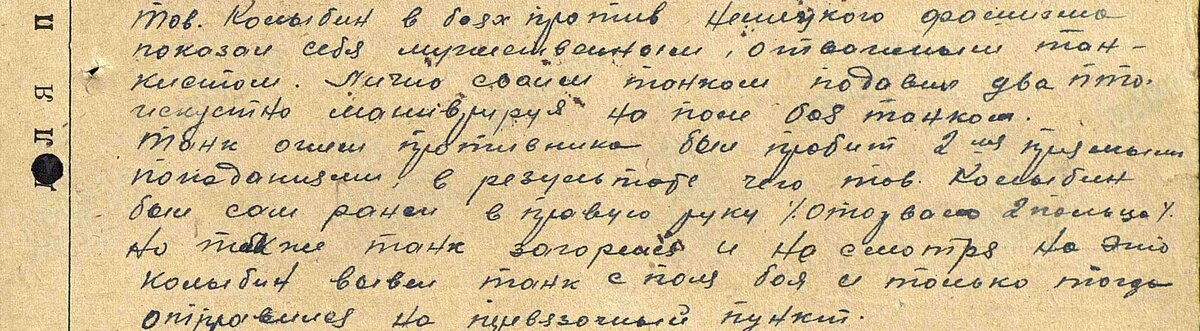 тов. Колыбин в боях против немецкого фашизма
показал себя мужественным, отважным тан-
кистом. Лично своим танком подавил два ПТО.
искустно манивруруя на поле боя танком.
Танк огнем противника был пробит 2мя прямыми
попаданиями, в результате чего тов. Колыбин
был сам ранен в правую руку /оторвало 2 пальца/.
но также танк загорелся и не смотря на это
Колыбин вывел танк с поля боя и только тогда
отправился на перевязочный пункт.
П
Я
Л